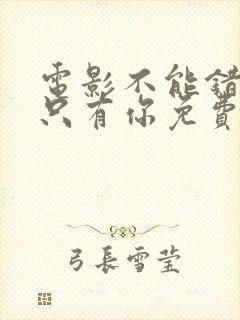 電影不能錯
只有你免費
弓長雪莹